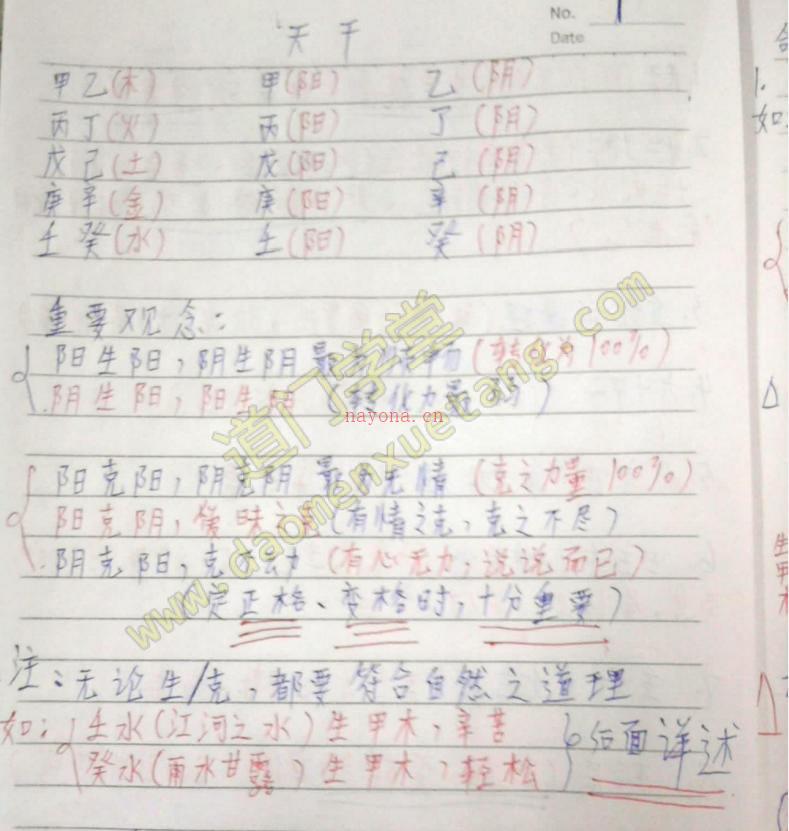 No. 1
Date
天干
甲乙(木) 甲(阳) 乙(阴)
丙丁(火) 丙(阳) 丁(阴)
戊己(土) 戊(阳) 己(阴)
庚辛(金) 庚(阳) 辛(阴)
壬癸(水) 壬(阳) 癸(阴)
重要观念:
阳生阳,阴生阴 最 (转化为100%)
阴生阳,阳生阴 (转化力最弱)
阳克阳,阴克阴 最为无情 (克之力量100%)
阳克阴, (有情之克,克之不尽)
阴克阳,克 力 (有心无力,说说而已)
定正格、变格时,十分重要)
注:无论生/克,都要符合自然之道理
如: 壬水(江河之水)生甲木,辛苦
癸水(雨水甘露)生甲木,轻松
后面详述
道门学堂
www.daomenxuetang.com
nayona.cn
如
生
甲
木